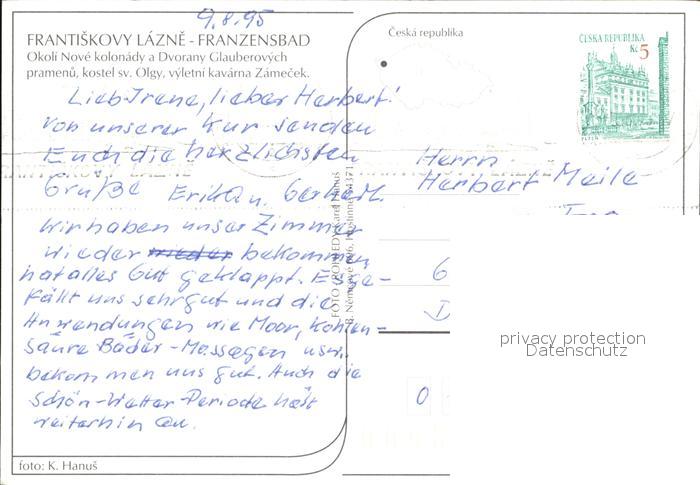 9.8.95
FRANTIŠKOVY LÁZNĚ - FRANZENSBAD
Okolí Nové kolonády a Dvorany Glauberových
pramenů, kostel sv. Olgy, výletní kavárna Zámeček.
Lieb Irene, lieber Herbert!
von unserer Kur senden
Euch die herzlichsten
Grüße Erika u. Gerhard.
Wir haben unser Zimmer
wieder wieder bekommen,
hat alles Gut geklappt. Es ge-
fällt uns sehr gut und die
Anwendungen wie Moor, Kohlen-
säure Bäder - Massagen usw.
bekommen uns gut. Auch die
Schön-Wetter-Periode hält
weiterhin an.
foto: K. Hanuš
Česká republika
ČESKÁ REPUBLIKA
Kč 5
PLZEŇ
Herrn
Herbert Meile
G
D
0
privacy protection
Datenschutz